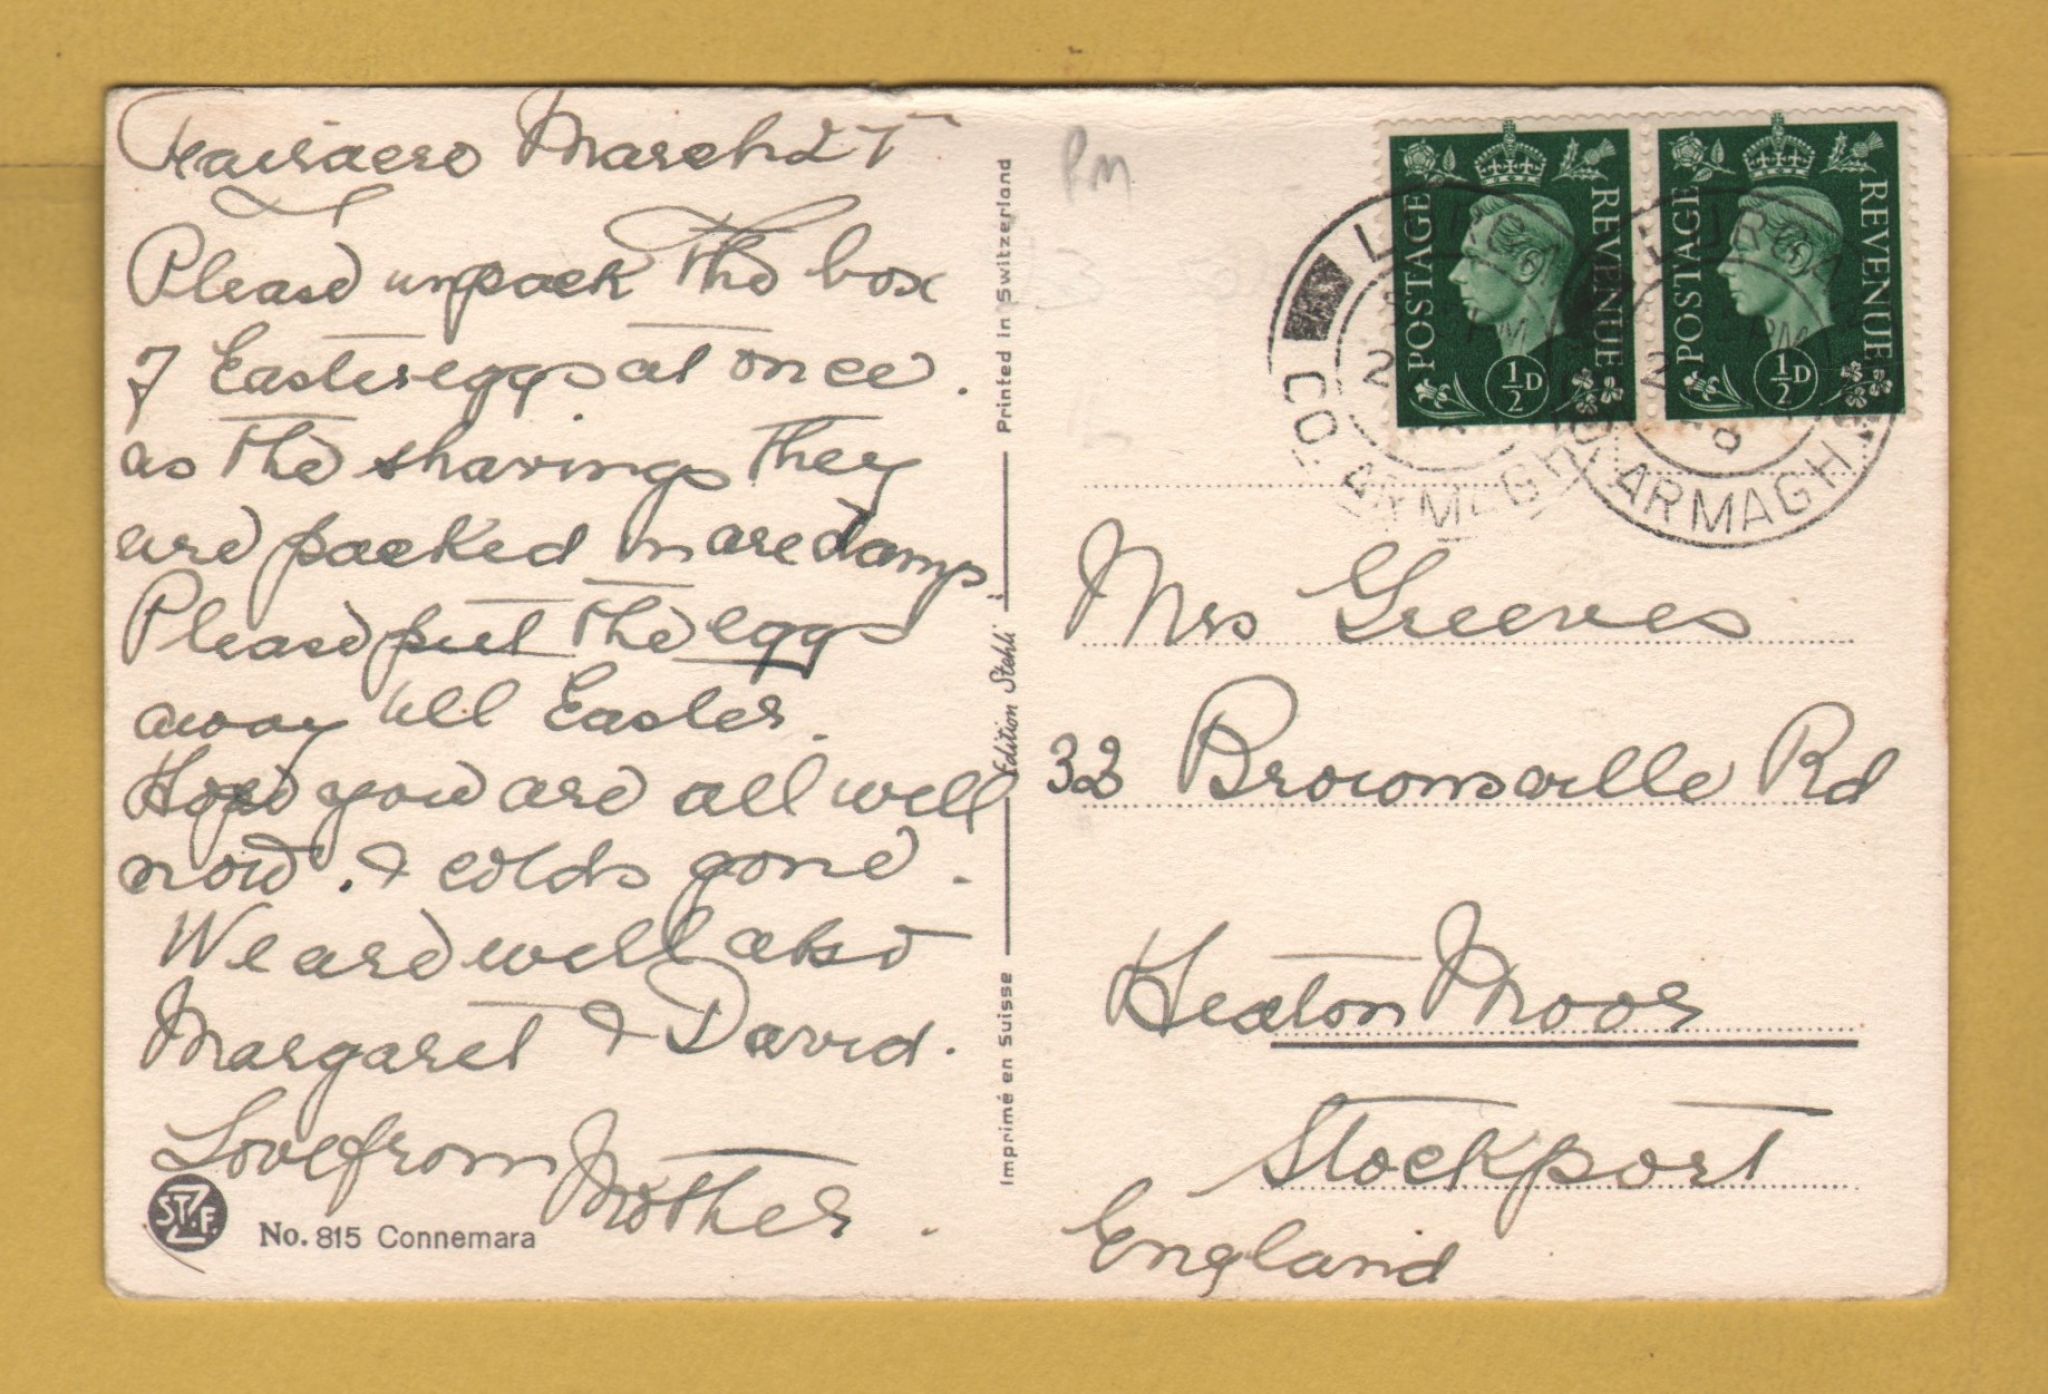 Fairacre March 27
Please unpack the box
of Easter eggs at once.
as the shavings they
are packed in are damp.
Please put the eggs
away till Easter.
Hope you are all well
now. & colds gone.
We are well also
Margaret & David.
Love from Mother.
STZF
No. 815 Connemara
Printed in Switzerland
Edition Stehli
Imprimé en Suisse
PM
POSTAGE REVENUE
½D
POSTAGE REVENUE
½D
LURGAN
CO. ARMAGH
LURGAN
CO. ARMAGH
Mrs Greeves
32 Brownsville Rd
Heaton Moor
Stockport
England